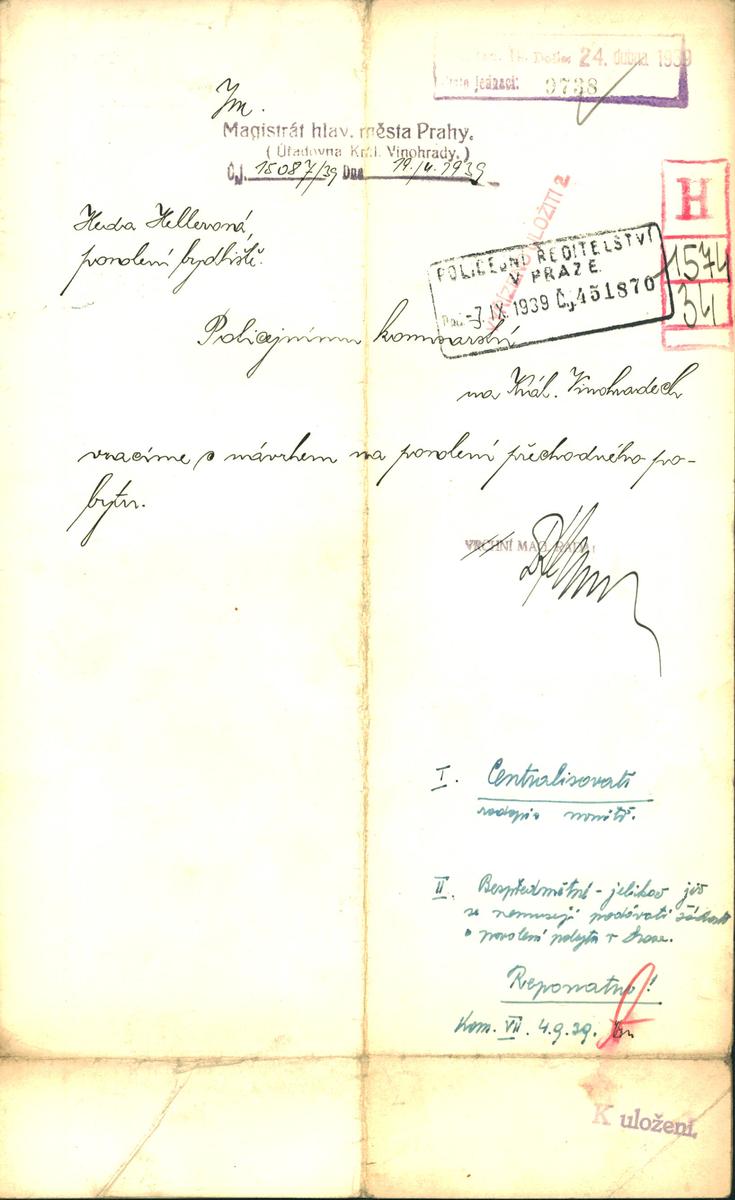 Došlo: 24. dubna 1939
jednací: 9738
Magistrát hlav. města Prahy.
( Úřadovna Král. Vinohrady. )
Č.j. 15087/39 Dne 19./4. 1939
H
1574
34
ULOŽITI 2
Heda Hellerová,
povolení bydliště.
POLICEJNÍ ŘEDITELSTVÍ
V PRAZE
-7.IX.1939 Čj 451870
Policejnímu komisařství
na Král. Vinohradech
vracíme s návrhem na povolení přechodného po-
bytu.
VRCHNÍ MAG. RADA:
I. Centralisovati
II. Bezpředmětné - jelikož již
se nemusejí podávati žádosti
o povolení pobytu v Praze.
Reponatur!
Kom. VII. 4.9.39.
K uložení.